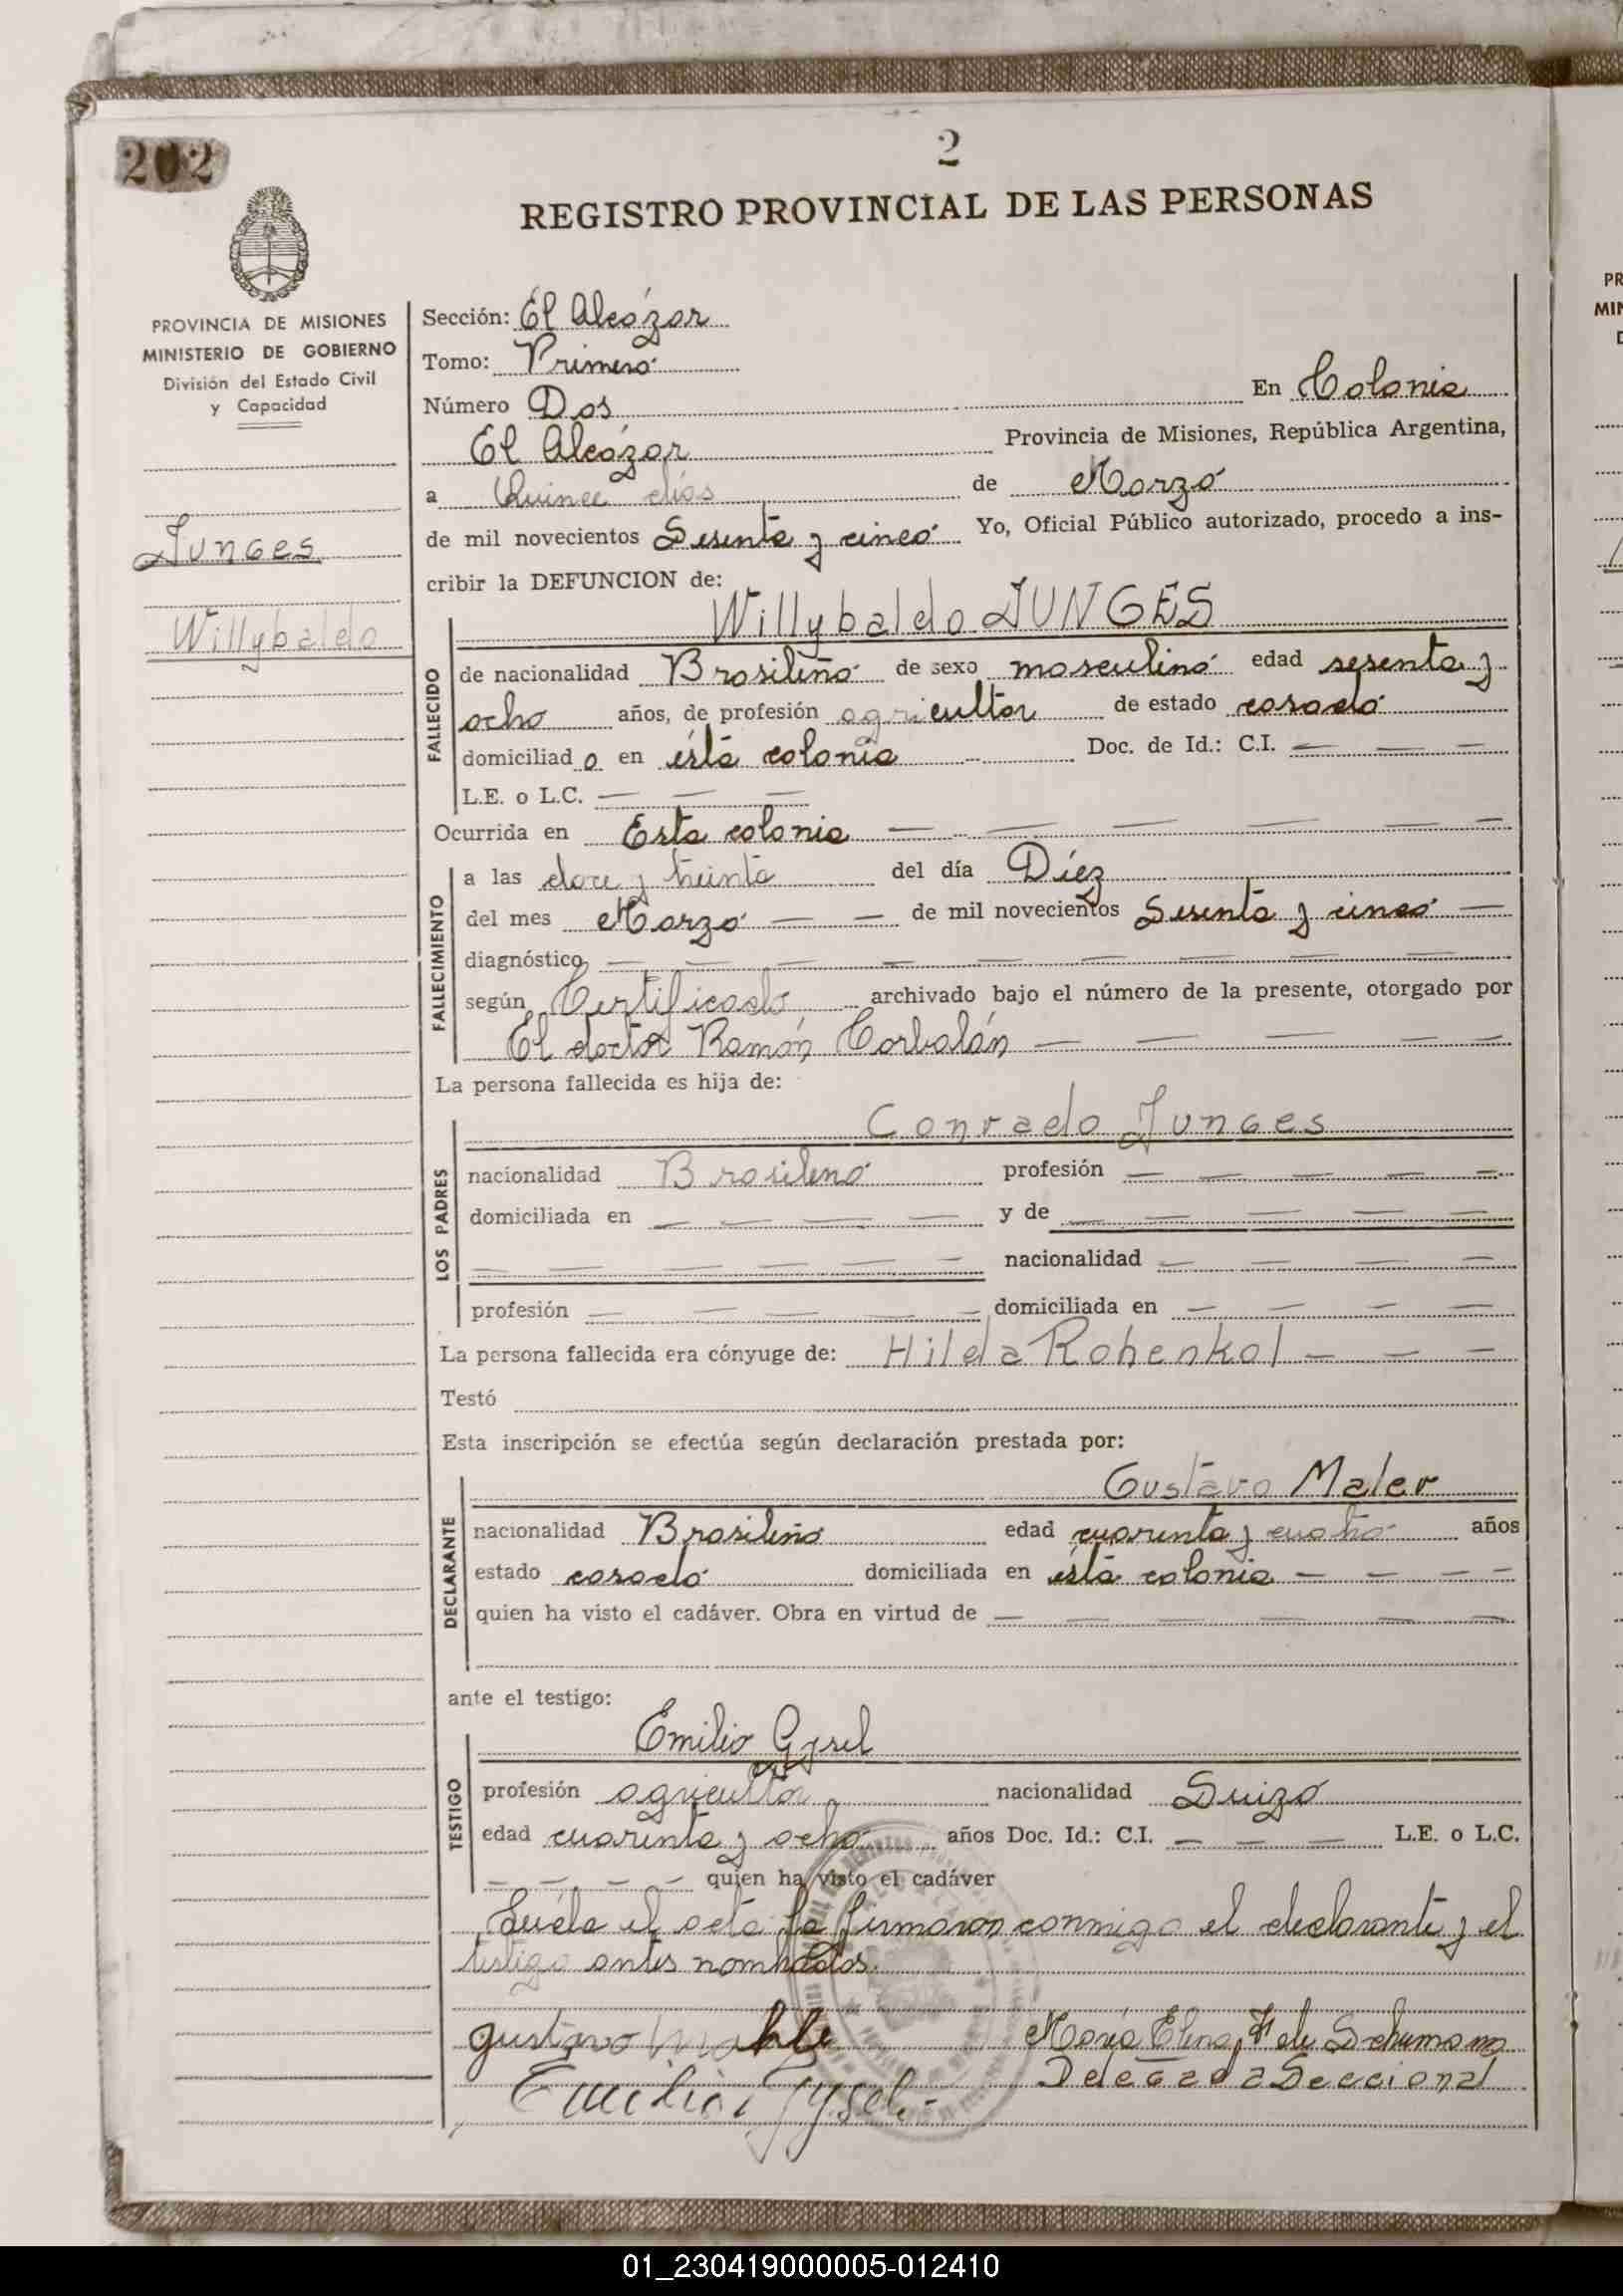 202
2
REGISTRO PROVINCIAL DE LAS PERSONAS
PROVINCIA DE MISIONES
MINISTERIO DE GOBIERNO
División del Estado Civil
y Capacidad
Junges
Willybaldo
Sección: El Alcázar
Tomo: Primero
Número Dos En Colonia
El Alcázar Provincia de Misiones, República Argentina,
a Quince días de Marzo
de mil novecientos Sesenta y cinco Yo, Oficial Público autorizado, procedo a ins-
cribir la DEFUNCION de:
Willybaldo JUNGES
FALLECIDO
de nacionalidad Brasileño de sexo masculino edad sesenta y
ocho años, de profesión agricultor de estado casado
domiciliado en ésta colonia Doc. de Id.: C.I. — — —
L.E. o L.C. — — —
Ocurrida en Esta colonia — — — — — —
FALLECIMIENTO
a las doce y treinta del día Diez
del mes Marzo — — de mil novecientos Sesenta y cinco —
diagnóstico — — — — — — — — — —
según Certificado archivado bajo el número de la presente, otorgado por
El doctor Ramón Corbalán — — — — —
La persona fallecida es hija de:
LOS PADRES
Conrado Junges
nacionalidad Brasileño profesión — — — — —
domiciliada en — — — — y de — — — — —
— — — — — — nacionalidad — — — —
profesión — — — — — domiciliada en — — — —
La persona fallecida era cónyuge de: Hilda Rohenkol — — —
Testó
Esta inscripción se efectúa según declaración prestada por:
DECLARANTE
Gustavo Maler
nacionalidad Brasileño edad cuarenta y cuatro años
estado casado domiciliada en ésta colonia — — — —
quien ha visto el cadáver. Obra en virtud de — — — — — —
ante el testigo:
TESTIGO
Emilio Gysel
profesión agricultor nacionalidad Suizo
edad cuarenta y ocho años Doc. Id.: C.I. — — — L.E. o L.C.
— — — — quien ha visto el cadáver
Leída el acta la firmaron conmigo el declarante y el
testigo antes nombrados.
gustavo María Elena F de Schumann
Delegada Seccional
Emilio Gysel
01_230419000005-012410